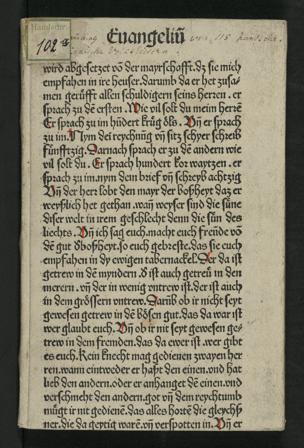 Handschr.
102
Euangeliū
wird abgesetzt vō der mayrschafft. dz sie mich
empfahen in ire heuser. Darumb da er het zusa-
men gerüfft allen schuldigern seins herren. er
sprach zu dē ersten. Wie vil solt du meim herrē
Er sprach zu im hūdert krüg öls. Vñ er sprach
zu im. Nym dei reychnūg vñ sitz schyer schreib
fünfftzig. Darnach sprach er zu dē andern wie
vil solt du. Er sprach hundert kor waytzen. er
sprach zu im nym dein brief vñ schreyb achtzig
Vñ der herr lobt den mayr der boßheyt daz er
weyßlich het gethan. wañ weyser sind die süne
diser welt in irem geschlecht denn die sün des
liechts. Vñ ich sag euch. macht euch freūde vō
dē gut d boßheyt. so euch gebreste. das sie euch
empfahen in dy ewigen tabernackel. Der da ist
getrew in dē myndern d ist auch getreü in den
merern. vñ der in wenig vntrew ist. der ist auch
in dem grössern vntrew. Darūb ob ir nicht seyt
gewesen getrew in dē bösen gut. das da war ist
wer glaubt euch. Vñ ob ir nit seyt gewesen ges-
trew in dem fremden. das da ewer ist. wer gibt
es euch. Kein knecht mag gedienen zwayen her
ren. wann eintweder er haßt den einen. vnd hat
lieb den andern. oder er anhanget dē einen. vnd
verschmeht den andern. got vñ dem reychtumb
mügt ir nit gedienē. das alles hortē die gleychß
ner. die da geytig warē. vñ verspotten in. Vñ er